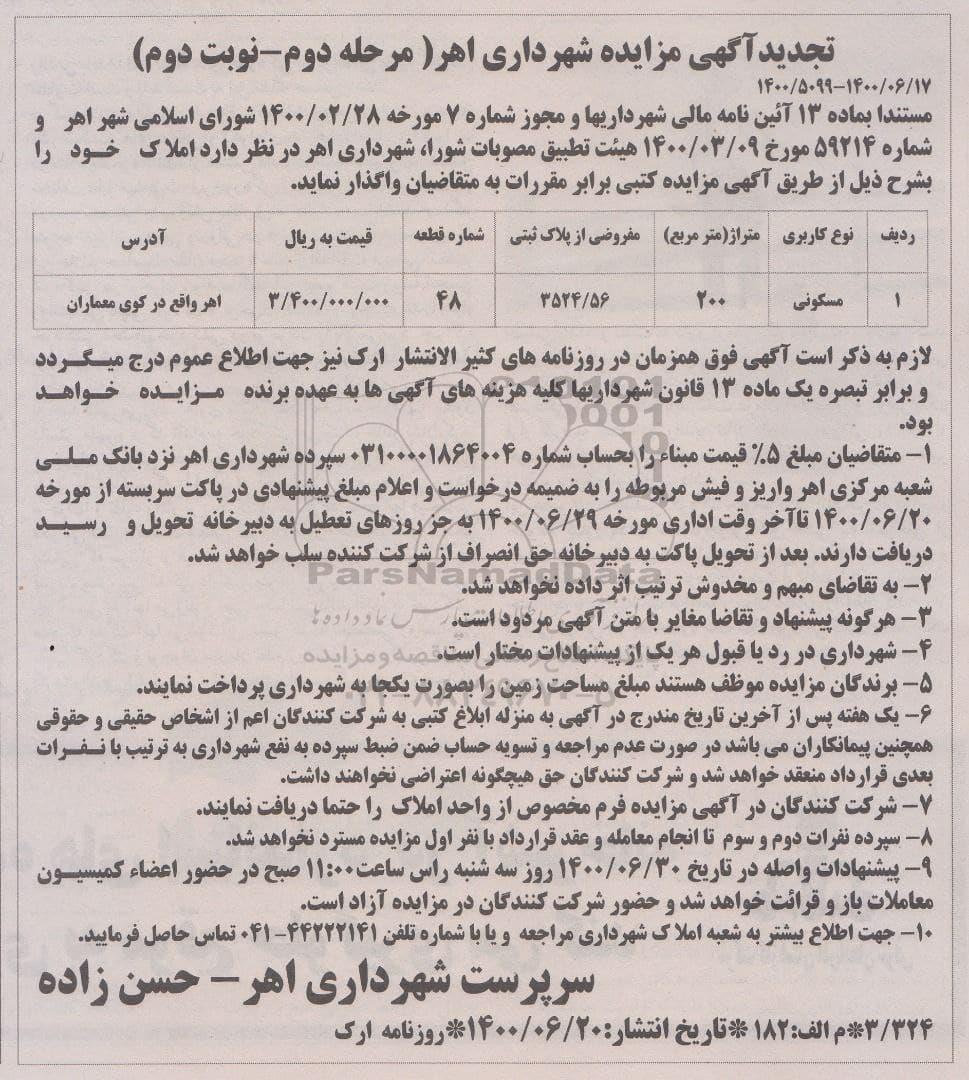 تجدیدآگهی مزایده شهرداری اهر( مرحله دوم-نوبت دوم)
۱۴۰۰/۵۰۹۹-۱۴۰۰/۰۶/۱۷
مستندا بماده ۱۳ آئین نامه مالی شهرداریها و مجوز شماره ۷ مورخه ۱۴۰۰/۰۲/۲۸ شورای اسلامی شهر اهر و
شماره ۵۹۲۱۴ مورخ ۱۴۰۰/۰۳/۰۹ هیئت تطبیق مصوبات شورا، شهرداری اهر در نظر دارد املاک خود را
بشرح ذیل از طریق آگهی مزایده کتبی برابر مقررات به متقاضیان واگذار نماید.
ردیف نوع کاربری متراژ(متر مربع) مفروضی از پلاک ثبتی شماره قطعه قیمت به ریال آدرس
۱ مسکونی ۲۰۰ ۳۵۲۴/۵۶ ۴۸ ۳/۴۰۰/۰۰۰/۰۰۰ اهر واقع در کوی معماران
لازم به ذکر است آگهی فوق همزمان در روزنامه های کثیر الانتشار ارک نیز جهت اطلاع عموم درج میگردد
و برابر تبصره یک ماده ۱۳ قانون شهرداریها کلیه هزینه های آگهی ها به عهده برنده مزایده خواهد
بود.
۱- متقاضیان مبلغ ۵٪ قیمت مبناء را بحساب شماره ۰۳۱۰۰۰۰۱۸۶۴۰۰۴ سپرده شهرداری اهر نزد بانک ملی
شعبه مرکزی اهر واریز و فیش مربوطه را به ضمیمه درخواست و اعلام مبلغ پیشنهادی در پاکت سربسته از مورخه
۱۴۰۰/۰۶/۲۰ تاآخر وقت اداری مورخه ۱۴۰۰/۰۶/۲۹ به جز روزهای تعطیل به دبیرخانه تحویل و رسید
دریافت دارند. بعد از تحویل پاکت به دبیرخانه حق انصراف از شرکت کننده سلب خواهد شد.
ParsNamadData
۲- به تقاضای مبهم و مخدوش ترتیب اثر داده نخواهد شد.
۳- هرگونه پیشنهاد و تقاضا مغایر با متن آگهی مردود است.
۴- شهرداری در رد یا قبول هر یک از پیشنهادات مختار است.
۵- برندگان مزایده موظف هستند مبلغ مساحت زمین را بصورت یکجا به شهرداری پرداخت نمایند.
۶- یک هفته پس از آخرین تاریخ مندرج در آگهی به منزله ابلاغ کتبی به شرکت کنندگان اعم از اشخاص حقیقی و حقوقی
همچنین پیمانکاران می باشد در صورت عدم مراجعه و تسویه حساب ضمن ضبط سپرده به نفع شهرداری به ترتیب با نفرات
بعدی قرارداد منعقد خواهد شد و شرکت کنندگان حق هیچگونه اعتراضی نخواهند داشت.
۷- شرکت کنندگان در آگهی مزایده فرم مخصوص از واحد املاک را حتما دریافت نمایند.
۸- سپرده نفرات دوم و سوم تا انجام معامله و عقد قرارداد با نفر اول مزایده مسترد نخواهد شد.
۹- پیشنهادات واصله در تاریخ ۱۴۰۰/۰۶/۳۰ روز سه شنبه راس ساعت۱۱:۰۰ صبح در حضور اعضاء کمیسیون
معاملات باز و قرائت خواهد شد و حضور شرکت کنندگان در مزایده آزاد است.
۱۰- جهت اطلاع بیشتر به شعبه املاک شهرداری مراجعه و یا با شماره تلفن ۴۴۲۲۲۱۴۱-۰۴۱ تماس حاصل فرمایید.
سرپرست شهرداری اهر- حسن زاده
۳/۳۲۴*م الف:۱۸۲ *تاریخ انتشار:۱۴۰۰/۰۶/۲۰*روزنامه ارک